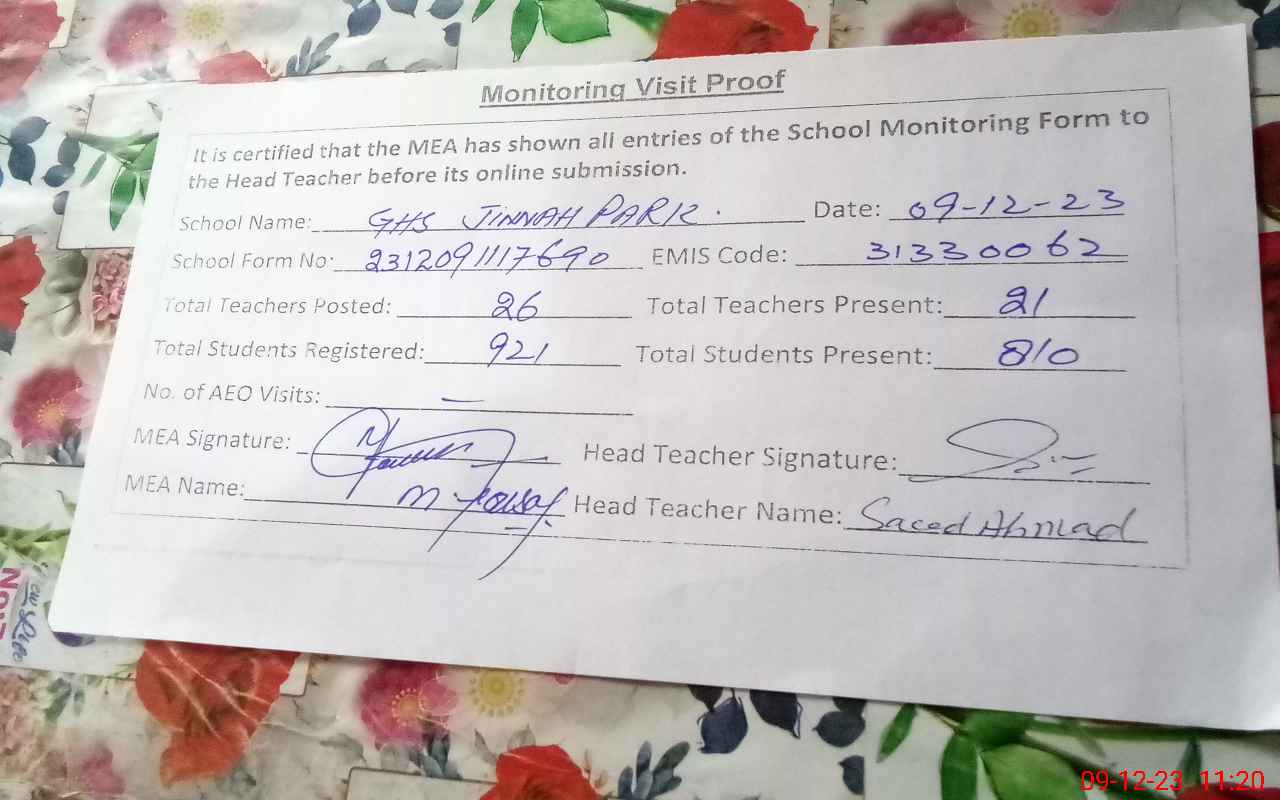 Monitoring Visit Proof
It is certified that the MEA has shown all entries of the School Monitoring Form to
the Head Teacher before its online submission.
School Name: GHS JINNAH PARK. Date: 09-12-23
School Form No: 2312091117690 EMIS Code: 31330062
Total Teachers Posted: 26 Total Teachers Present: 21
Total Students Registered: 921 Total Students Present: 810
No. of AEO Visits: –
MEA Signature: Head Teacher Signature:
MEA Name: M. Yousaf Head Teacher Name: Saeed Ahmad
09-12-23 11:20